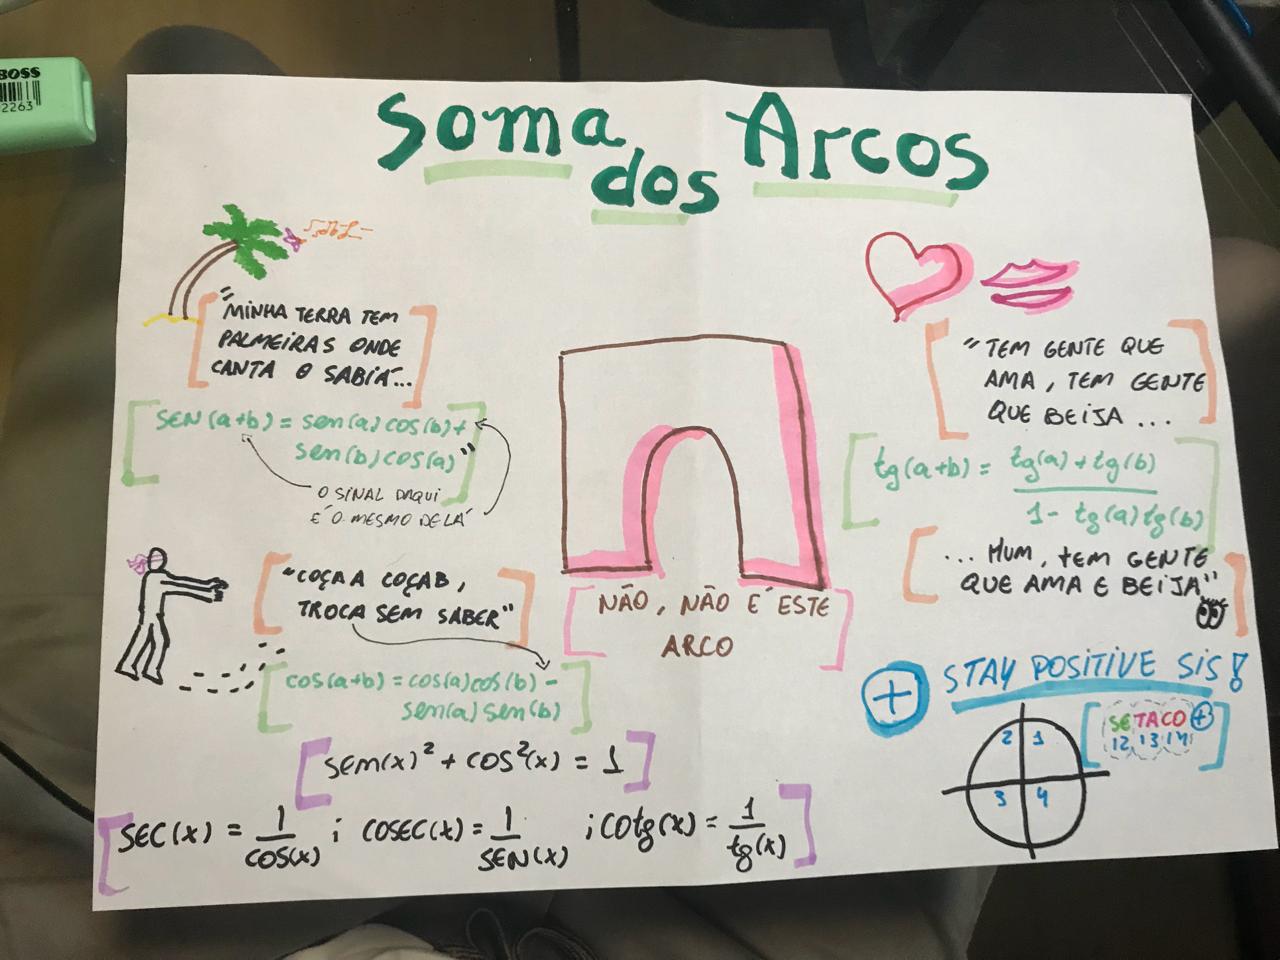 BOSS
2263
Soma dos Arcos
"MINHA TERRA TEM
PALMEIRAS ONDE
CANTA O SABIÁ...
SEN(a+b) = sen(a) cos(b) +
sen(b) cos(a)"
O SINAL DAQUI
É O MESMO DE LÁ
"COÇA A COÇA B,
TROCA SEM SABER"
cos(a+b) = cos(a) cos(b) -
sen(a) sen(b)
NÃO, NÃO É ESTE
ARCO
"TEM GENTE QUE
AMA, TEM GENTE
QUE BEIJA ...
tg(a+b) = tg(a) + tg(b)
1 - tg(a) tg(b)
... HUM, TEM GENTE
QUE AMA E BEIJA"
+ STAY POSITIVE SIS!
SETACO +
12 13 14
2 1
3 4
sem(x)² + cos²(x) = 1
SEC(x) = 1 ; COSEC(x) = 1 ; COtg(x) = 1
COS(x) SEN(x) tg(x)